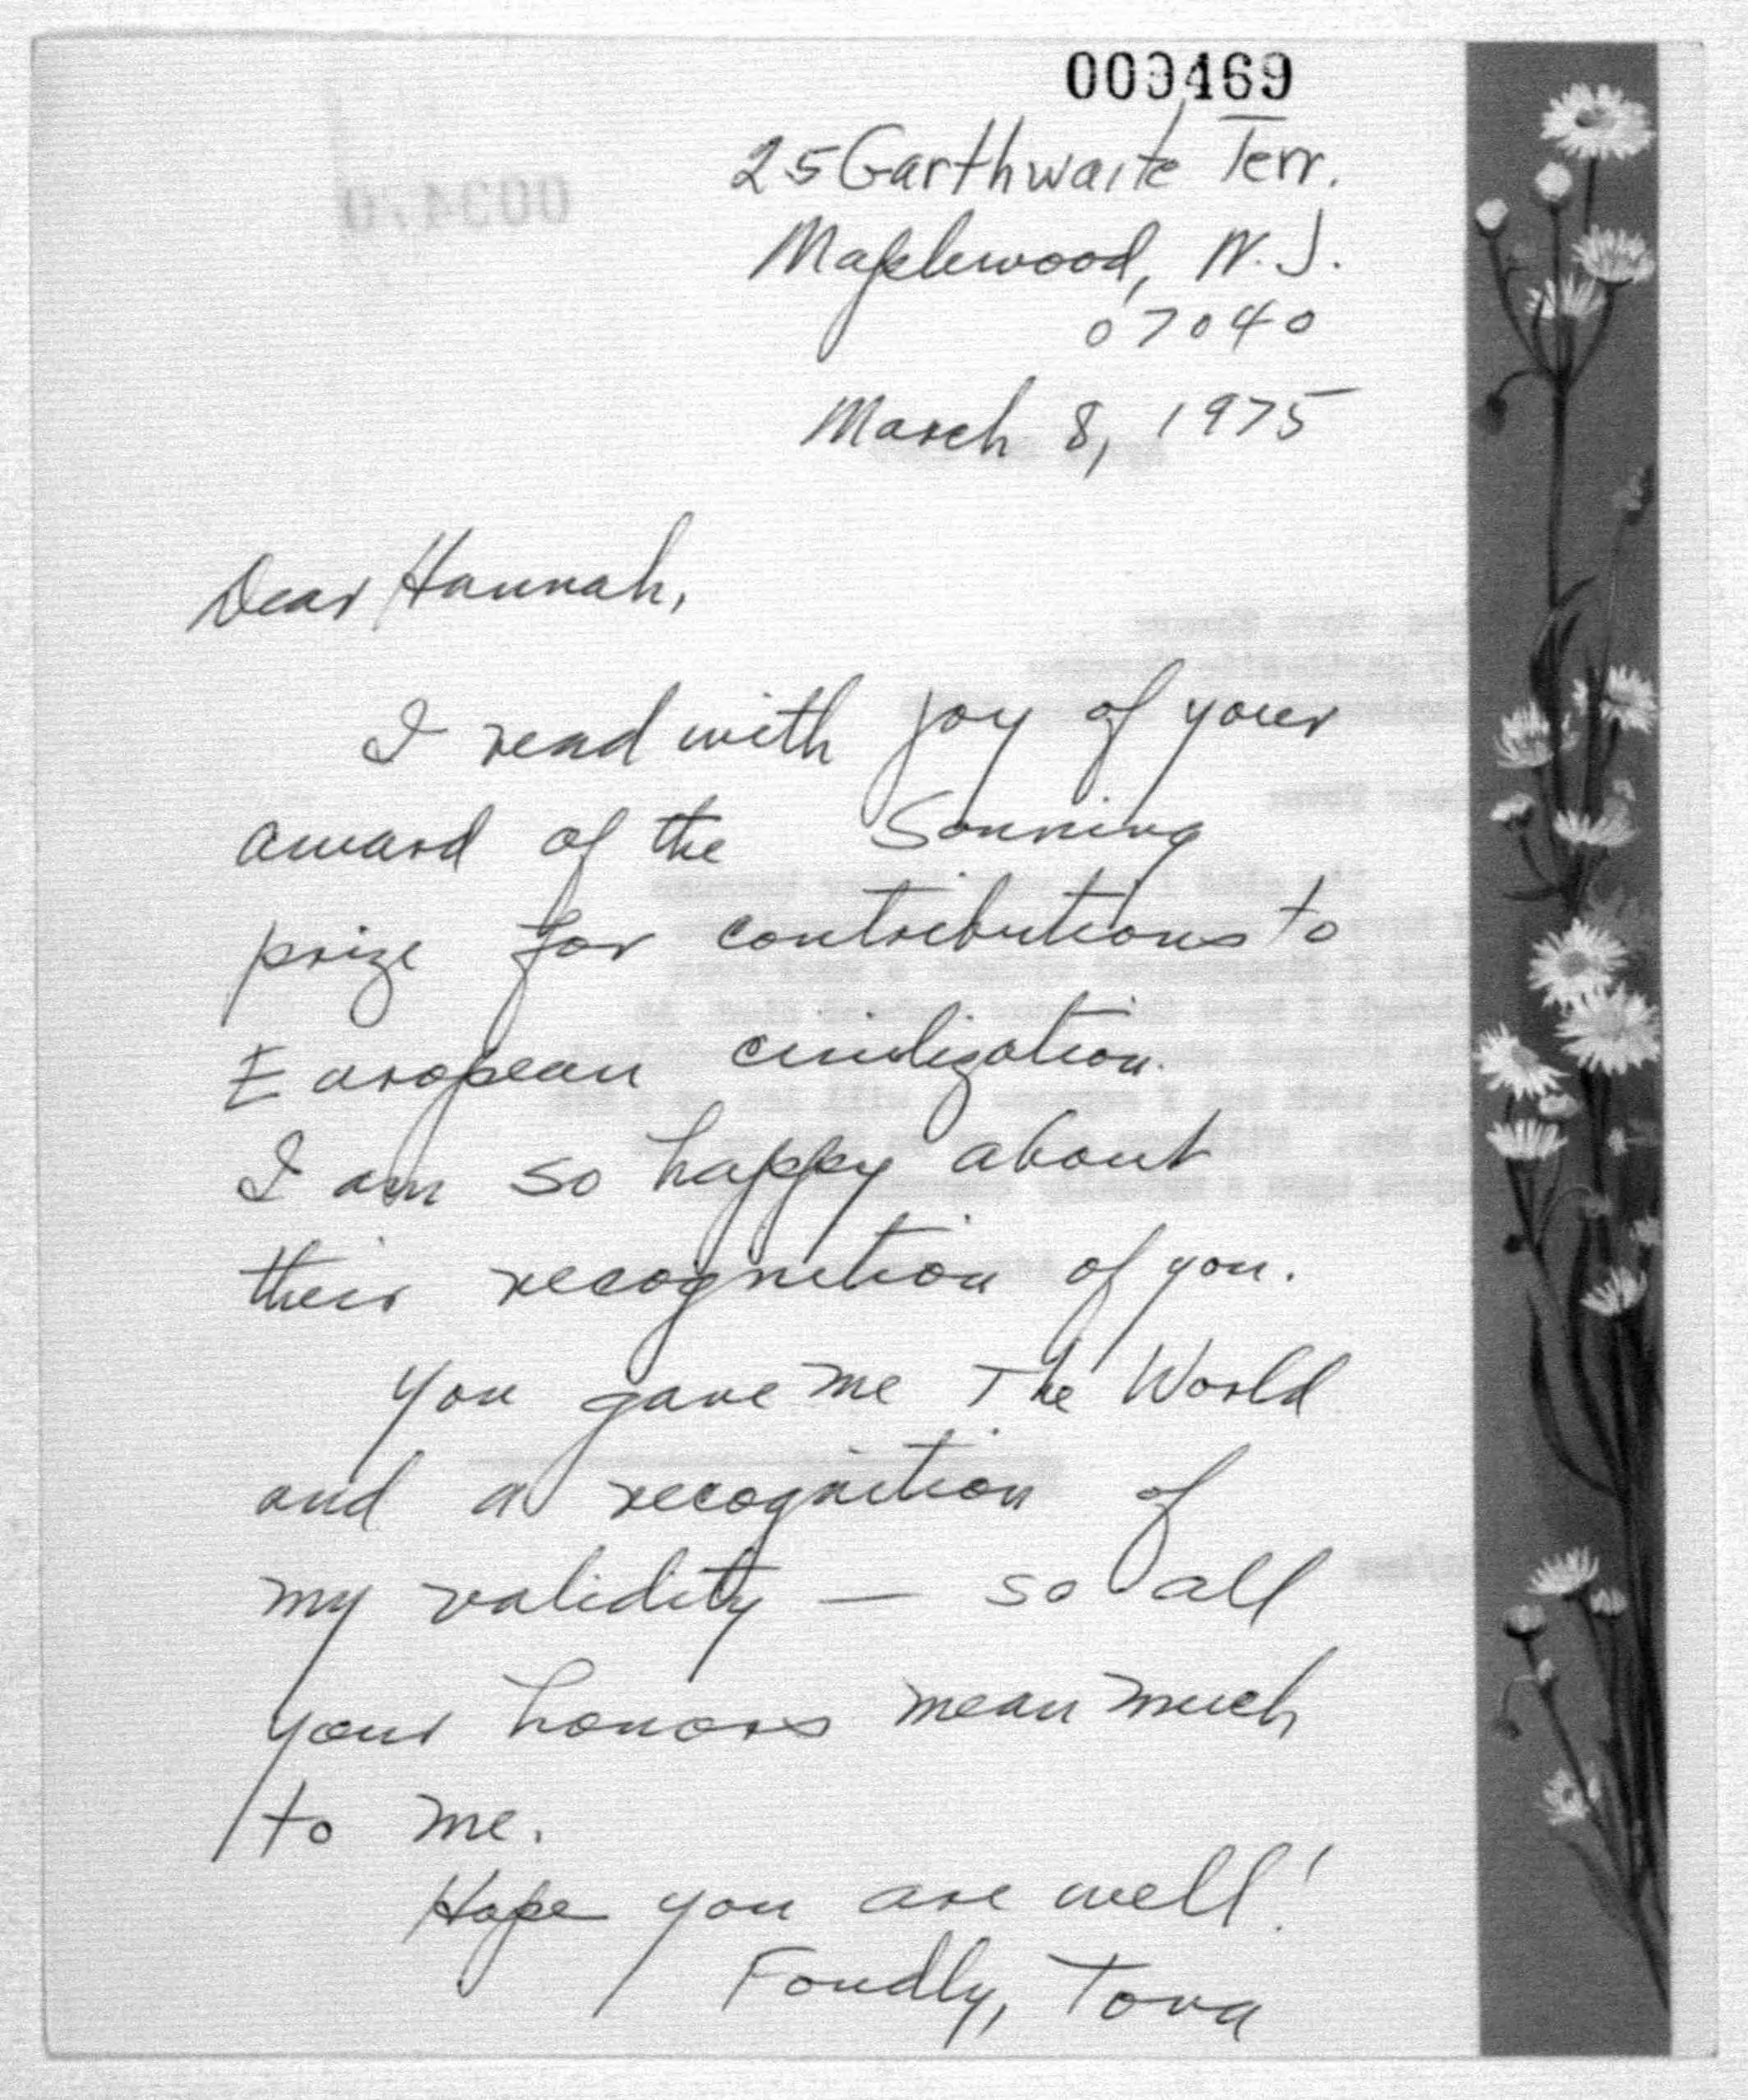 009469
25 Garthwaite Terr.
Maplewood, N.J.
07040
March 8, 1975
Dear Hannah,
I read with joy of your
award of the Sonning
prize for contributions to
European civilization.
I am so happy about
their recognition of you.
You gave me The World
and a recognition of
my validity — so all
your honors mean much
to me.
Hope you are well!
Fondly, Tova